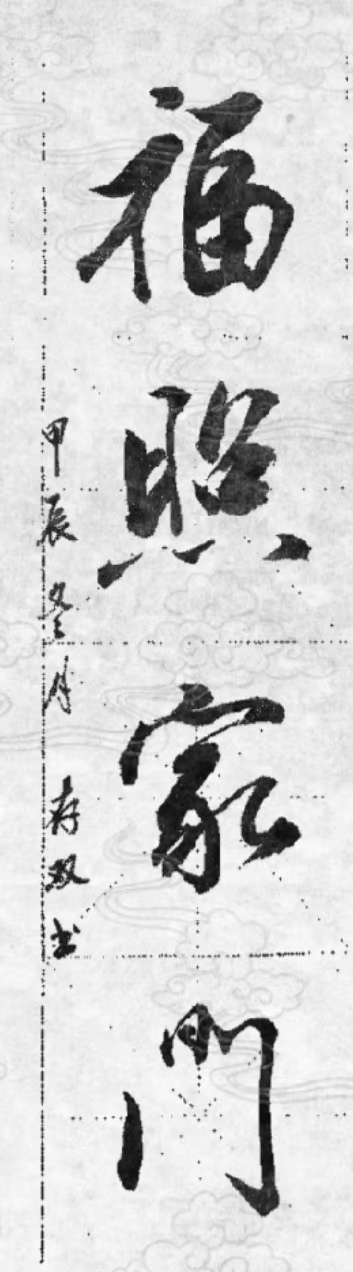 福照家門
甲辰冬月 存双书